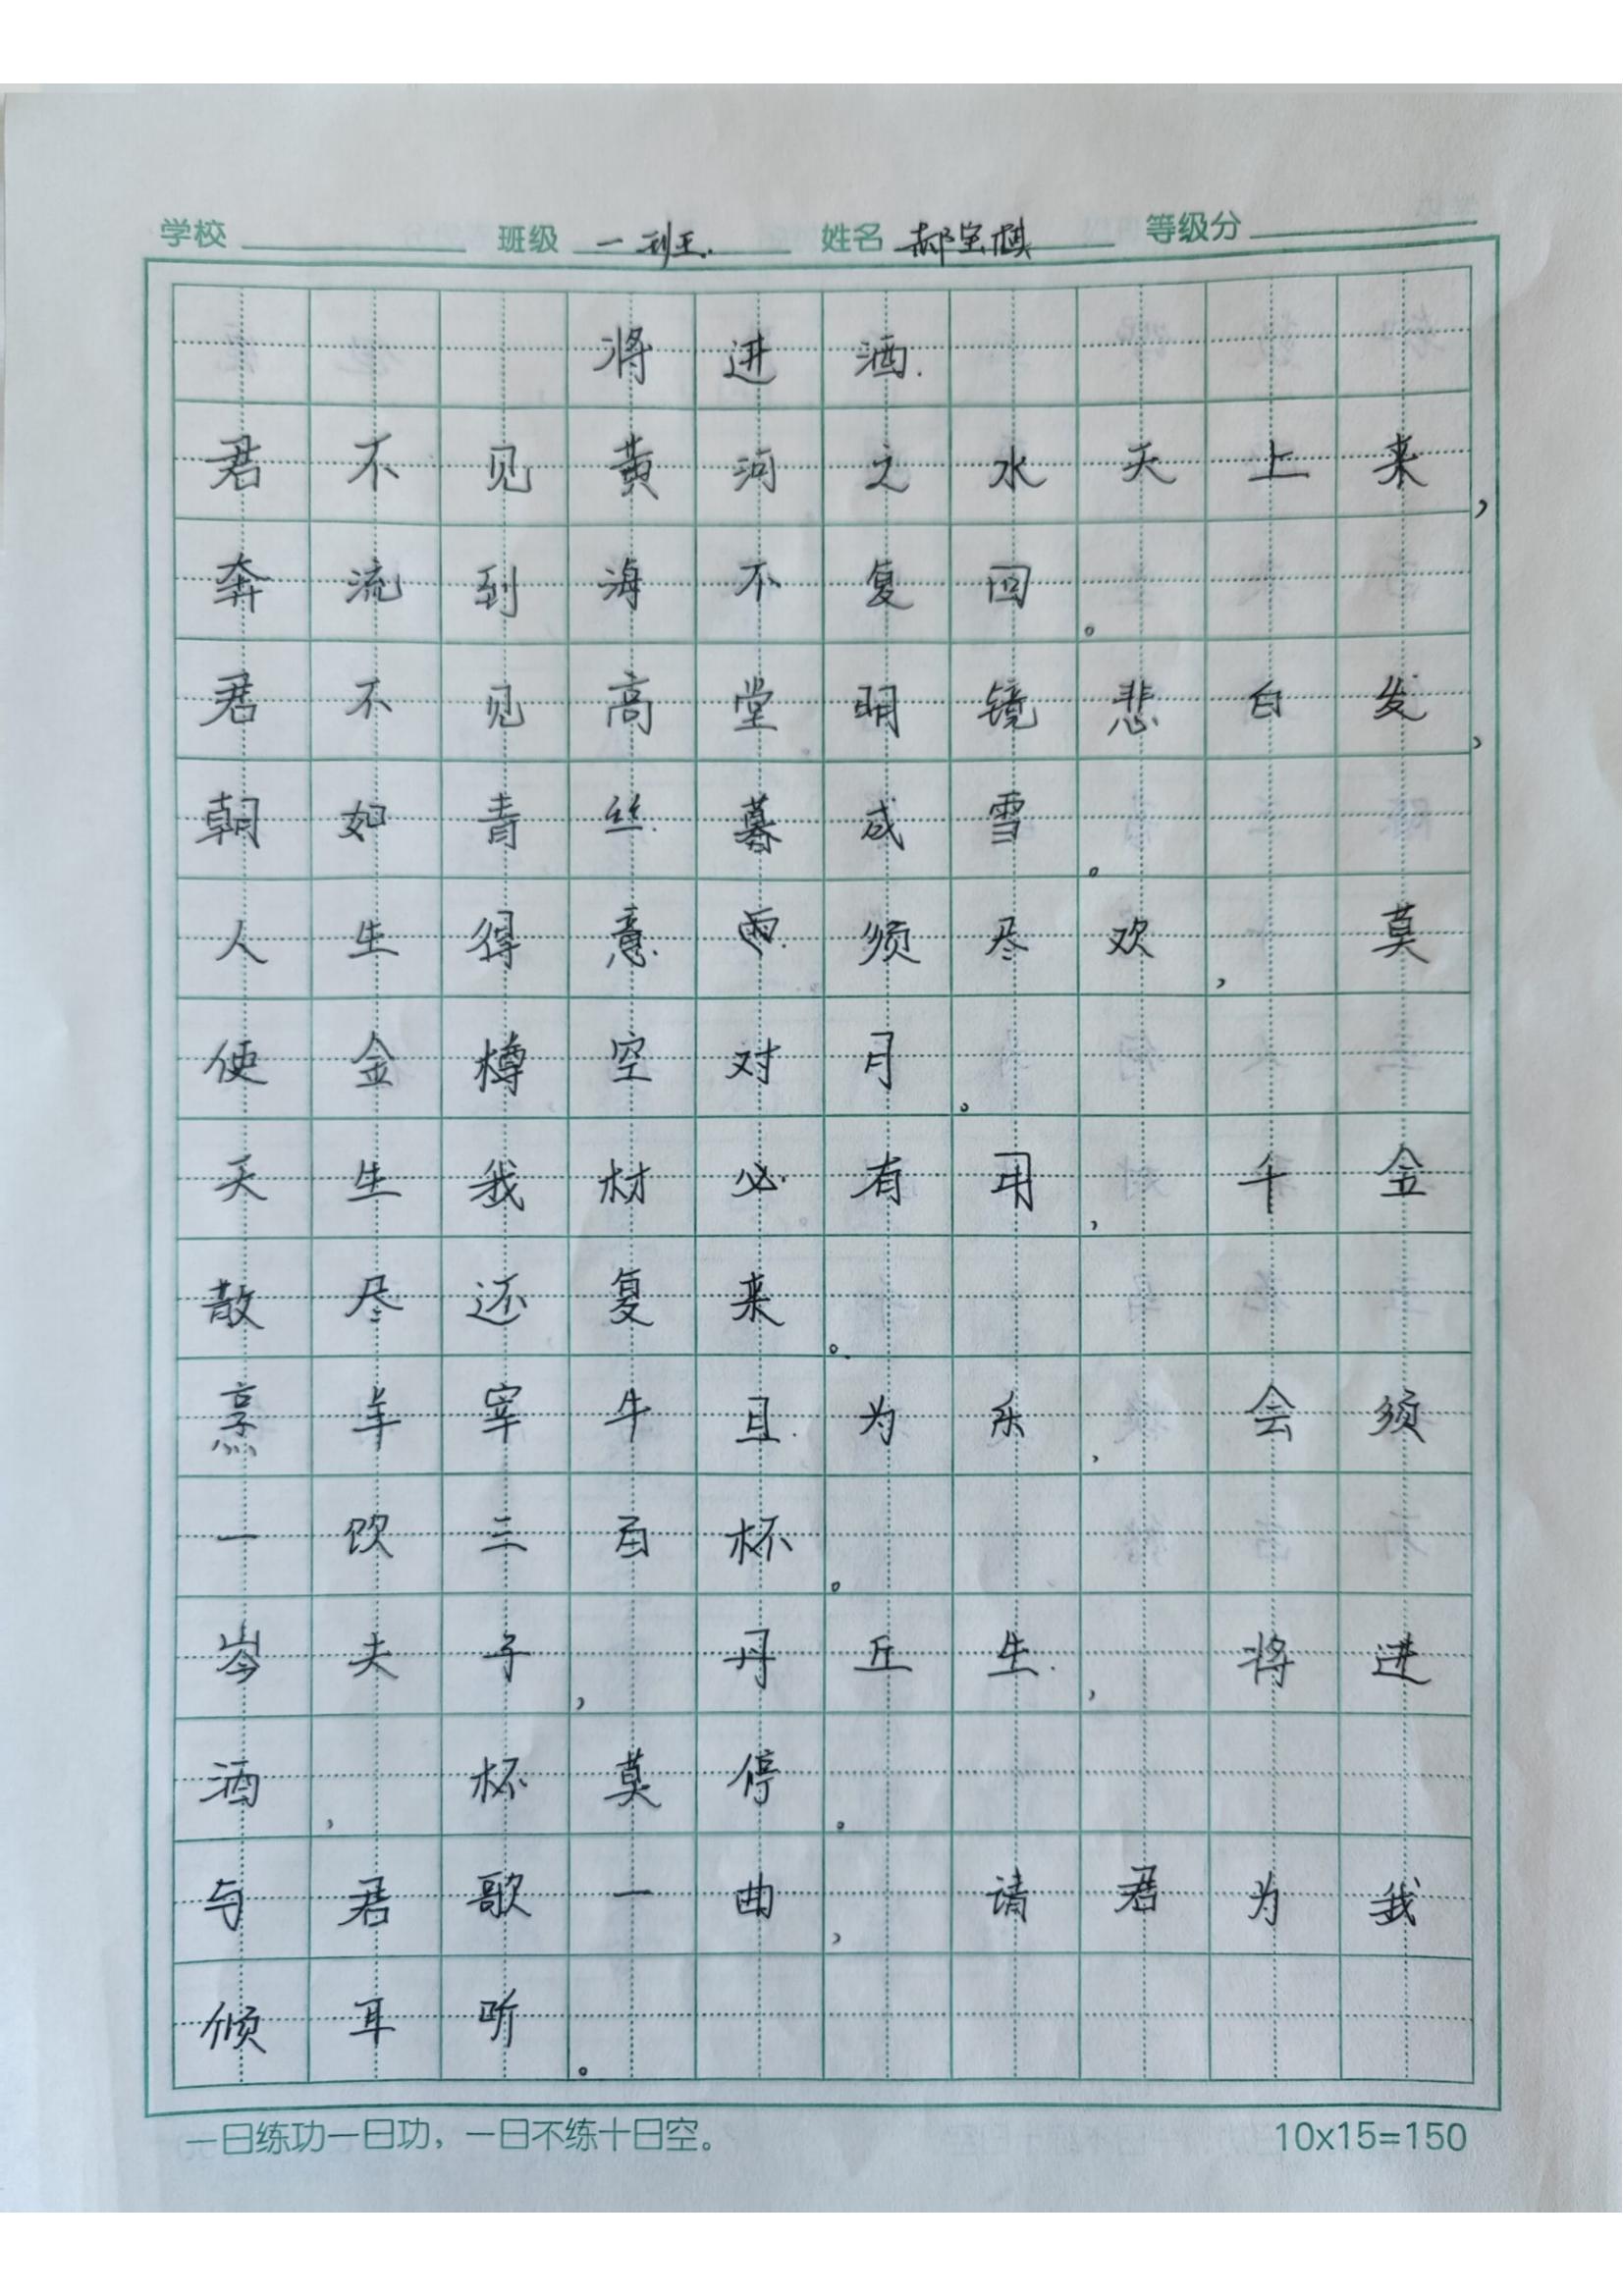 学校 班级 一班 姓名 郝宝祺 等级分
将进酒.
君不见黄河之水天上来,
奔流到海不复回。
君不见高堂明镜悲白发,
朝如青丝暮成雪。
人生得意须尽欢, 莫
使金樽空对月。
天生我材必有用, 千金
散尽还复来。
烹羊宰牛且为乐, 会须
一饮三百杯。
岑夫子, 丹丘生, 将进
酒, 杯莫停。
与君歌一曲, 请君为我
倾耳听。
一日练功一日功，一日不练十日空。 10x15=150